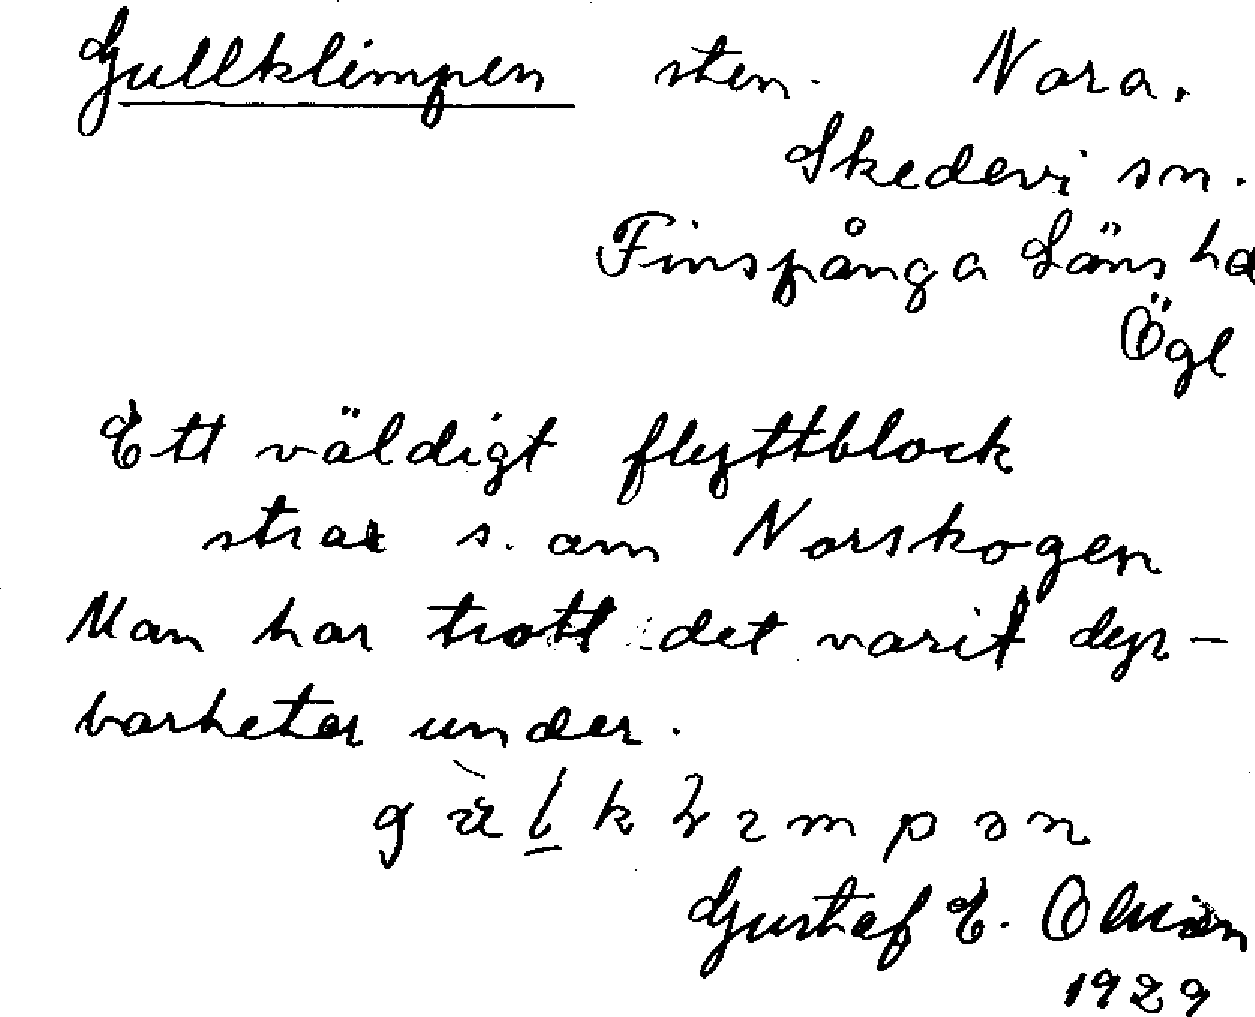 Gullklimpen sten. Nora.
Skedevi sn.
Finspånga Läns hd
Ögl
Ett väldigt flyttblock
strax s. om Norskogen
Man har trott det varit dyr-
barheter under.
Gustaf E. Olsson
1929